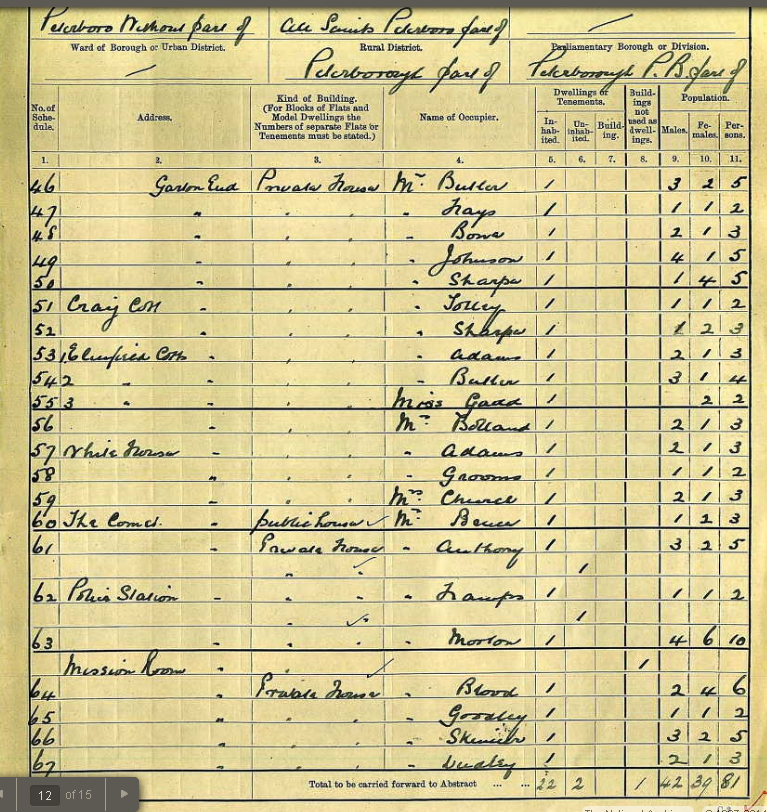 Peterboro Without part of All Saints Peterboro part of
Ward of Borough or Urban District. Rural District. Parliamentary Borough or Division.
Peterborough part of Peterborough P.B. part of
No. of Schedule. Address. Kind of Building. (For Blocks of Flats and Model Dwellings the Numbers of separate Flats or Tenements must be stated.) Name of Occupier. Dwellings or Tenements. Inhabited. Uninhabited. Building. Buildings not used as dwellings. Population. Males. Females. Persons.
1. 2. 3. 4. 5. 6. 7. 8. 9. 10. 11.
46 Garton End Private House Mr Butler 1 3 2 5
47 " " " " 1 1 1 2
48 " " " " Bowe 1 2 1 3
49 " " " " Johnson 1 4 1 5
50 " " " " Sharpe 1 1 4 5
51 Craig Cott " " " Tolley 1 1 1 2
52 " " " " Sharpe 1 1 2 3
53 1 Cotts " " " " Adams 1 2 1 3
54 2 " " " " " Butler 1 3 1 4
55 3 " " " " Miss Gadd 1 2 2
56 " " " Mr Bolland 1 2 1 3
57 White House " " " " Adams 1 2 1 3
58 " " " " Grooms 1 1 1 2
59 " " " Mrs Church 1 2 1 3
60 The Comet " public house Mr 1 1 2 3
61 " Private House " Anthony 1 3 2 5
" " 1
62 Police Station " " " " 1 1 1 2
" 1
63 " " " " Morton 1 4 6 10
Mission Room " " 1
64 " Private House " Blood 1 2 4 6
65 " " " " Goodley 1 1 1 2
66 " " " " Skinner 1 3 2 5
67 " " " " Dudley 1 2 1 3
Total to be carried forward to Abstract ... ... 22 2 1 42 39 81
12 of 15